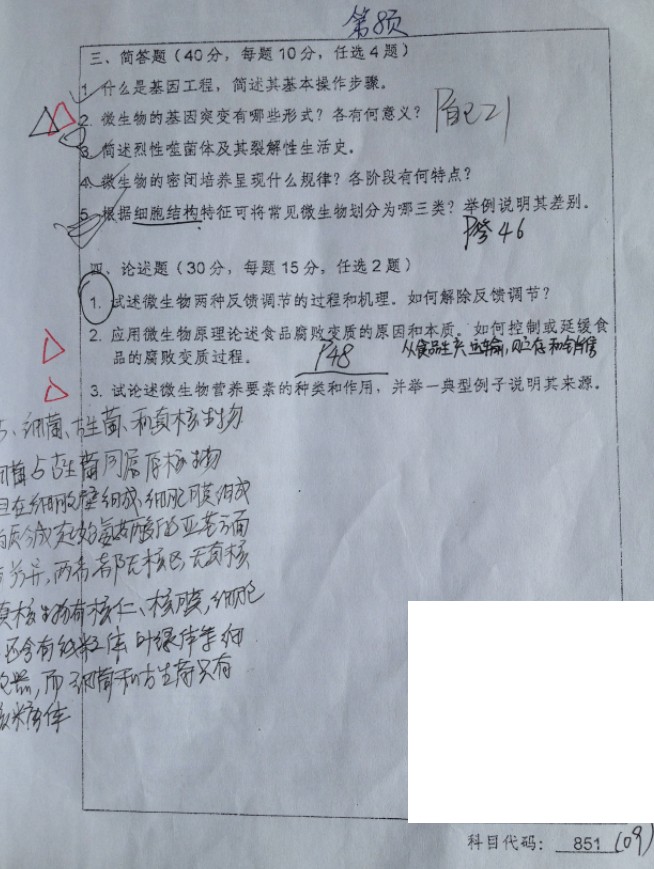 第8页
三、简答题（40分，每题10分，任选4题）
1、什么是基因工程，简述其基本操作步骤。
2. 微生物的基因突变有哪些形式？各有何意义？ P自己21
3、简述烈性噬菌体及其裂解性生活史。
4、微生物的密闭培养呈现什么规律？各阶段有何特点？
5、根据细胞结构特征可将常见微生物划分为哪三类？举例说明其差别。
46
四、论述题（30分，每题15分。任选2题）
1. 试述微生物两种反馈调节的过程和机理。如何解除反馈调节？
2. 应用微生物原理论述食品腐败变质的原因和本质。如何控制或延缓食
品的腐败变质过程。 P48 从食品生产、运输、贮存和销售
3. 试论述微生物营养要素的种类和作用，并举一典型例子说明其来源。
5、细菌、古生菌、和真核生物
菌与古生菌同属原核生物
但在细胞壁组成、细胞膜组成
质合成起始氨基酸
差异，两者都无核仁，无
真核生物有核仁、核膜，细胞
还含有线粒体 叶绿体等细
胞器，而细菌和古生菌只有
核糖体
科目代码： 851 (09)